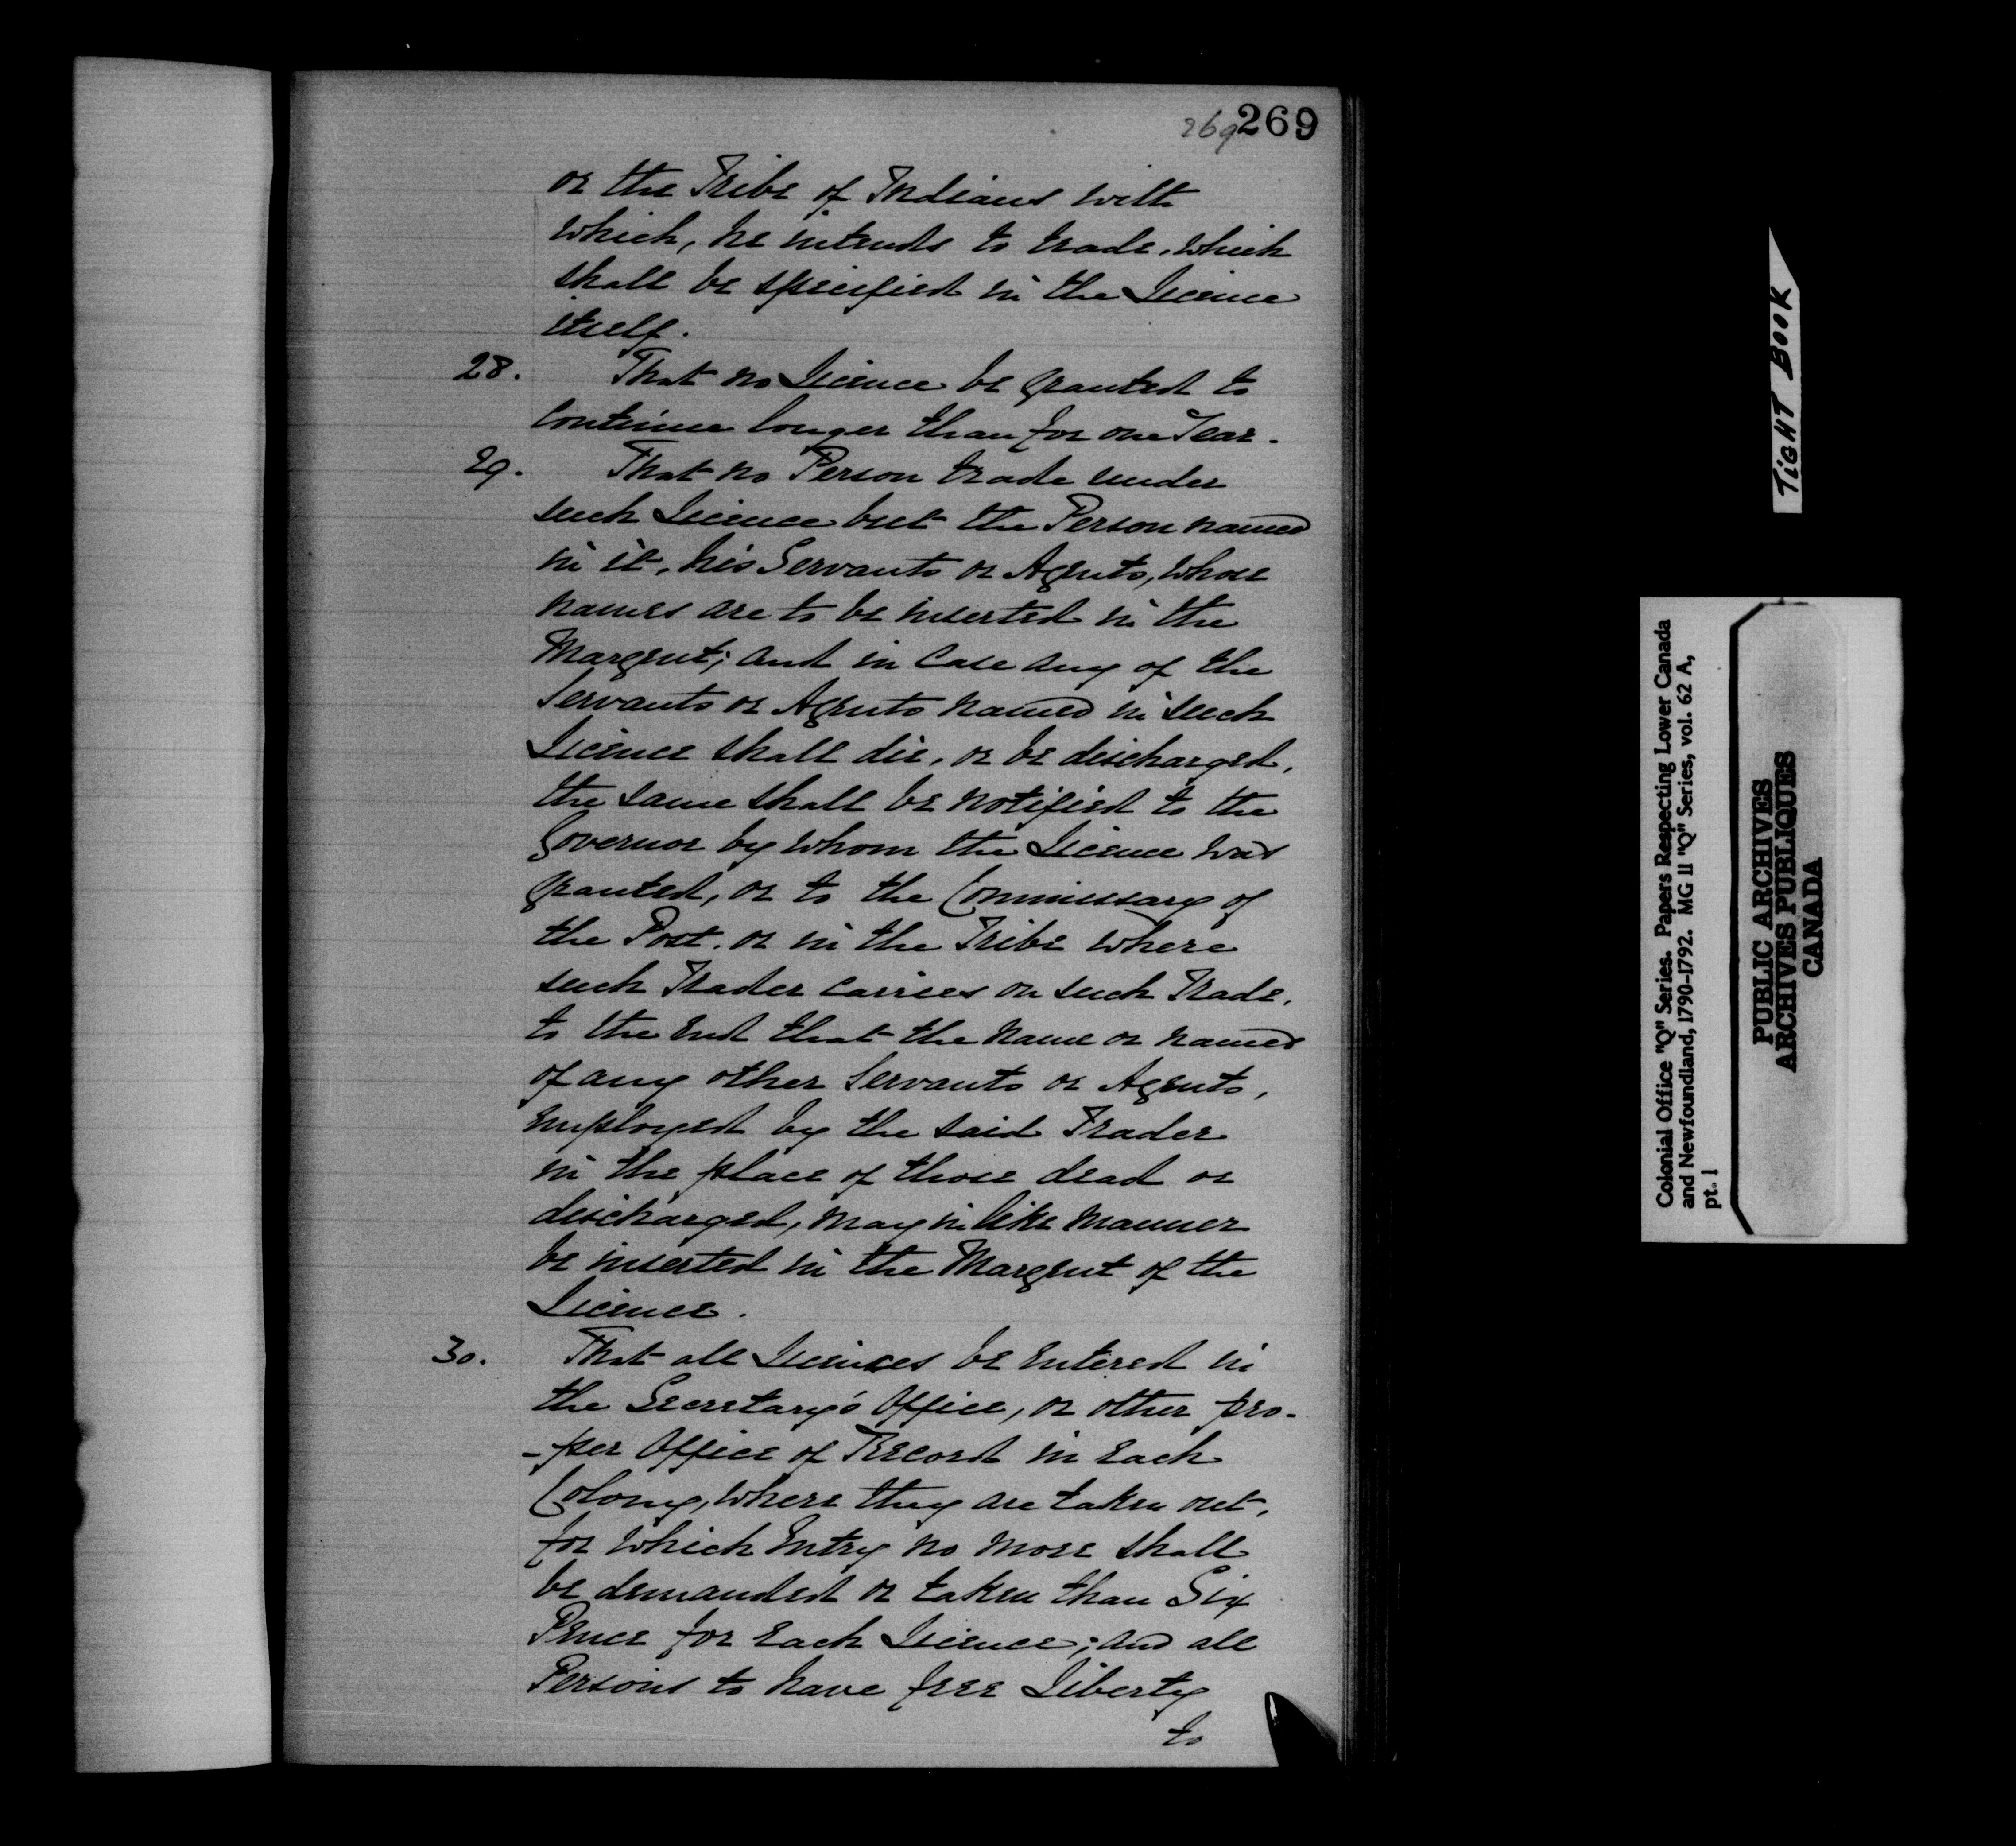 269 269
or the Tribe of Indians with
which, he intends to trade, which
shall be specified in the Licence
itself.
28. That no Licence be granted to
continue longer than for one Year.
29. That no Person trade under
such Licence but the Person named
in it, his Servants or Agents, whose
names are to be inserted in the
Margent; and in Case any of the
Servants or Agents named in such
Licence shall die, or be discharged,
the same shall be notified to the
Governor by whom the Licence was
granted, or to the Commissary of
the Post, or in the Tribe where
such Trader carries on such Trade,
to the End that the name or names
of any other Servants or Agents,
employed by the said Trader
in the place of those dead or
discharged, may in like manner
be inserted in the Margent of the
Licence.
30. That all Licences be entered in
the Secretary's Office, or other pro-
-per Office of Record in each
Colony, where they are taken out,
for which Entry no more shall
be demanded or taken than Six
Pence for each Licence; and all
Persons to have free Liberty
to
TIGHT BOOK
Colonial Office "Q" Series. Papers Respecting Lower Canada
and Newfoundland, 1790-1792. MG 11 "Q" Series, vol. 62 A,
pt. 1
PUBLIC ARCHIVES
ARCHIVES PUBLIQUES
CANADA